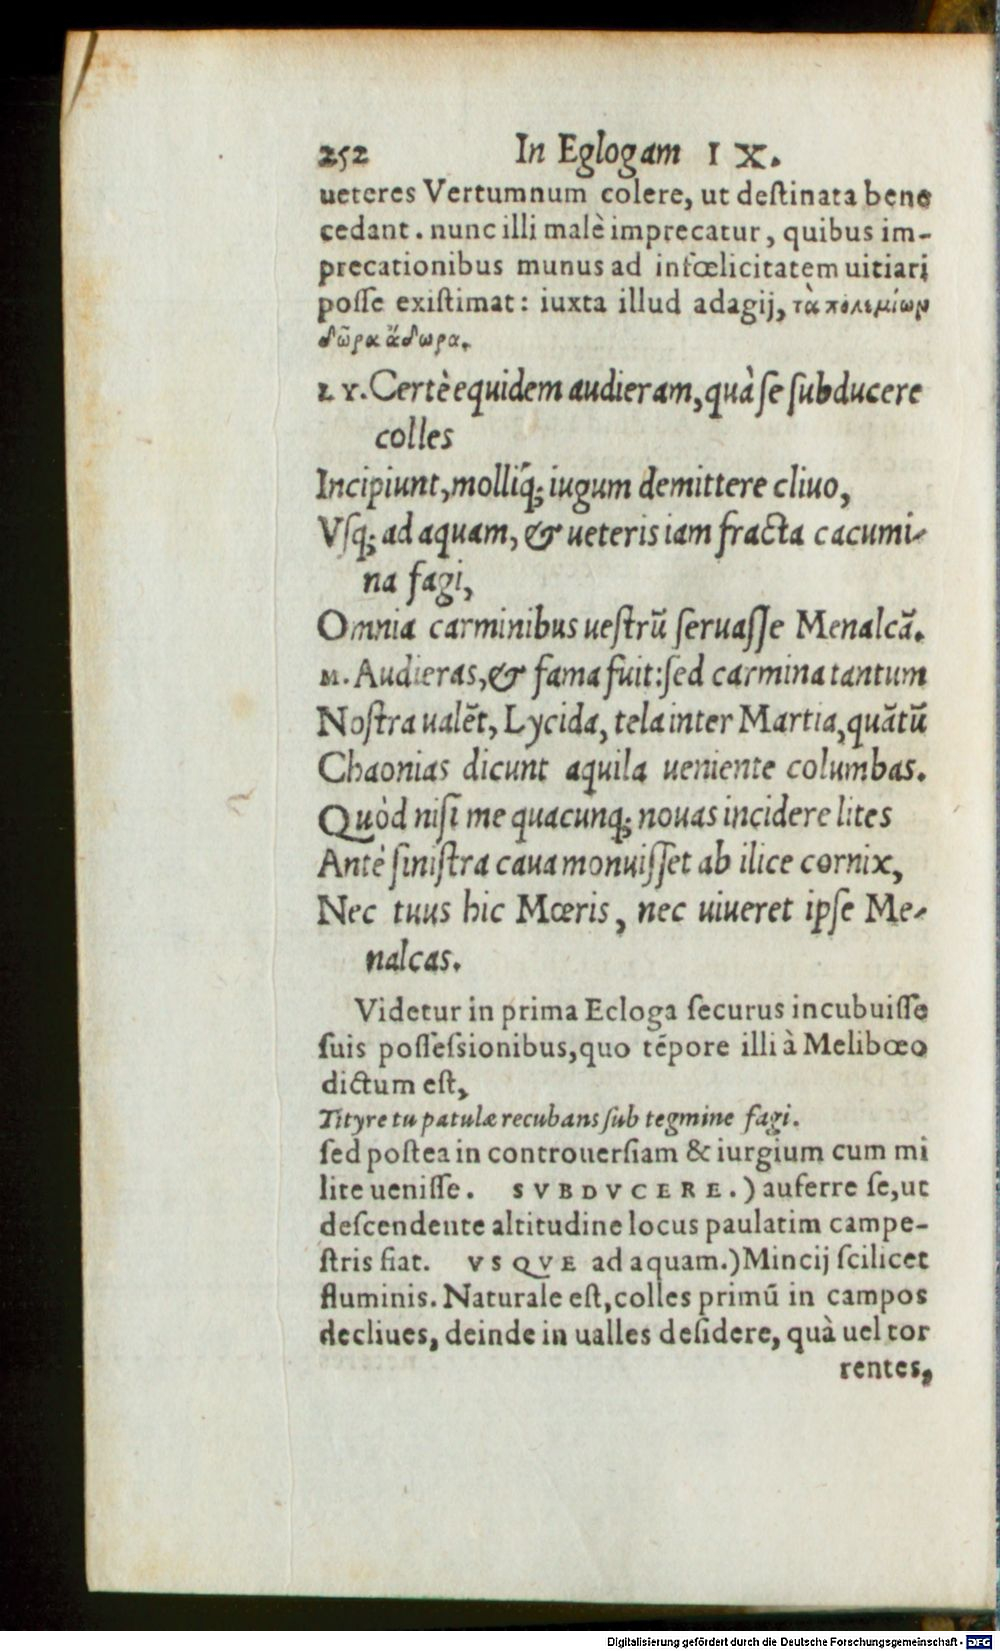 252 In Eglogam IX.
ueteres Vertumnum colere, ut destinata bene
cedant. nunc illi malè imprecatur, quibus im-
precationibus munus ad infœlicitatem uitiari
posse existimat: iuxta illud adagij, τὰ πολεμίωρ
δῶρα ἄδωρα.
LY. Certè equidem audieram, quà se subducere
colles
Incipiunt, molliq́; iugum demittere cliuo,
Vsq; ad aquam, & ueteris iam fracta cacumi-
na fagi,
Omnia carminibus uestrũ seruasse Menalcã.
M. Audieras, & fama fuit: sed carmina tantum
Nostra ualẽt, Lycida, tela inter Martia, quãtũ
Chaonias dicunt aquila ueniente columbas.
Quòd nisi me quacunq; nouas incidere lites
Antè sinistra caua monuisset ab ilice cornix,
Nec tuus hic Mœris, nec uiueret ipse Me-
nalcas.
Videtur in prima Ecloga securus incubuisse
suis possessionibus, quo tẽpore illi à Melibœo
dictum est,
Tityre tu patulæ recubans sub tegmine fagi.
sed postea in controuersiam & iurgium cum mi
lite uenisse. SVBDVCERE.) auferre se, ut
descendente altitudine locus paulatim campe-
stris fiat. VSQVE ad aquam.) Mincij scilicet
fluminis. Naturale est, colles primũ in campos
decliues, deinde in ualles desidere, quà uel tor
rentes,
Digitalisierung gefördert durch die Deutsche Forschungsgemeinschaft - DFG